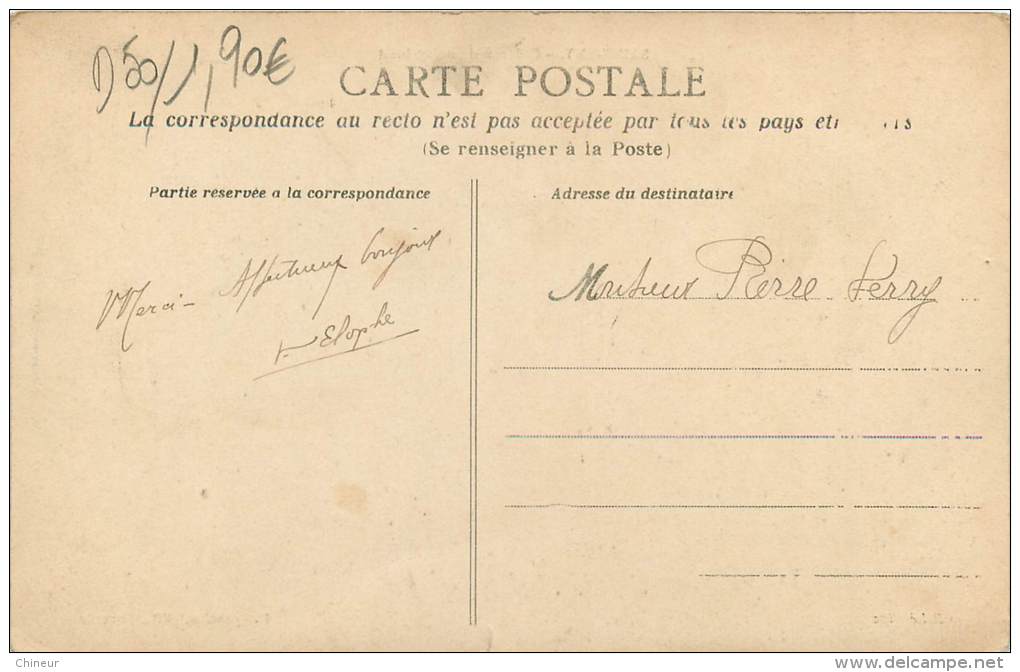 D50/1,90€
CARTE POSTALE
La correspondance au recto n'est pas acceptée par tous les pays etr
(Se renseigner à la Poste)
Partie reservée a la correspondance
Merci – Affectueux bonjour
Elophe
Adresse du destinataire
Monsieur Pierre Ferry
Chineur
www.delcampe.net